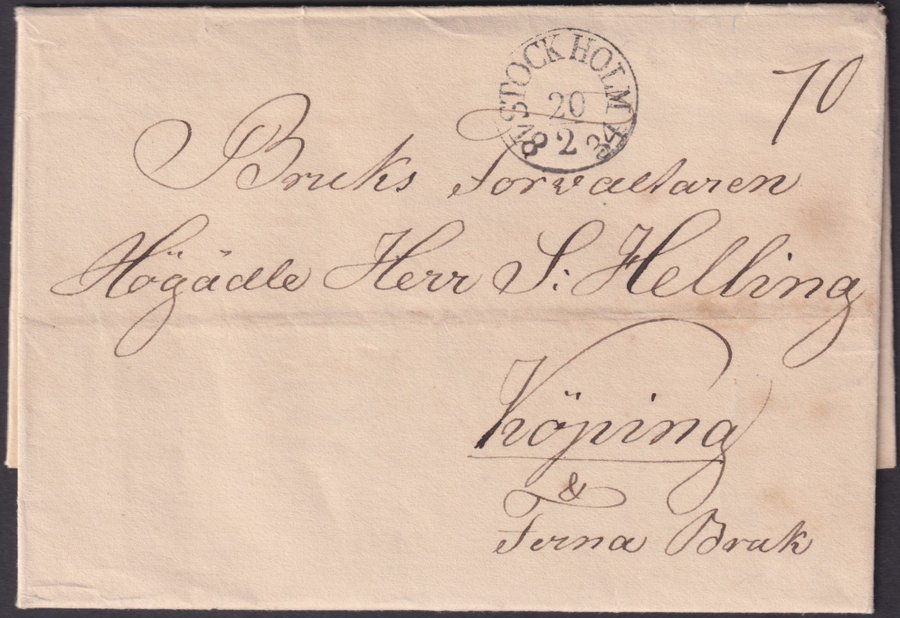 STOCKHOLM
20
2
1834
70
Bruks Forvaltaren
Högädle Herr S: Helling
Köping
&
Ferna Bruk